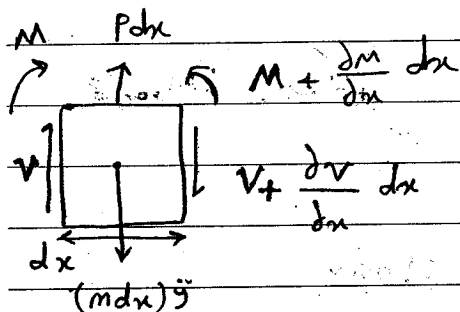 M Pdx M + ∂M/∂x dx
V V + ∂V/∂x dx
dx
(mdx)ÿ